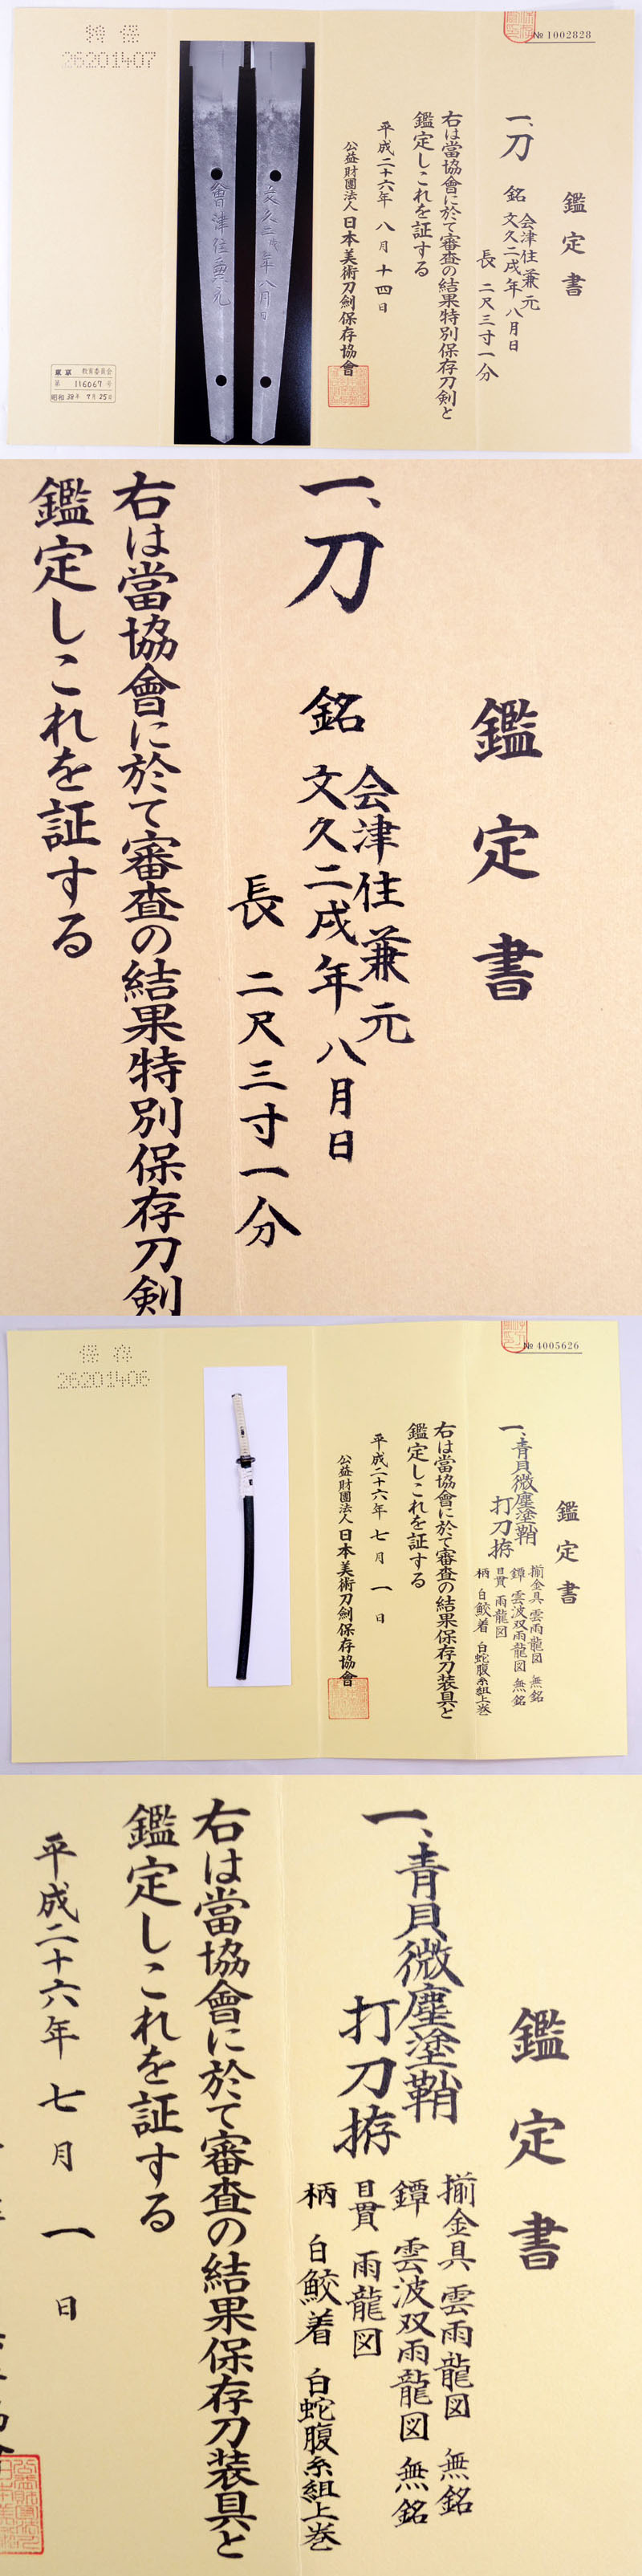 № 1002828
鑑定書
一、刀
銘
会津住兼元
文久二戌年八月日
長 二尺三寸一分
右は當協會に於て審査の結果特別保存刀剣と
鑑定しこれを証する
平成二十六年 八月 十四日
公益財團法人 日本美術刀剣保存協會
文久二戌年八月日
會津住兼元
特保
26201407
東京 教育委員会
第 116067 号
昭和38年 7月25日
鑑定書
一、刀
銘
会津住兼元
文久二戌年八月日
長 二尺三寸一分
右は當協會に於て審査の結果特別保存刀剣
鑑定しこれを証する
№ 4005626
鑑定書
一、青貝微塵塗鞘
打刀拵
揃金具 雲雨龍図 無銘
鐔 雲波双雨龍図 無銘
目貫 雨龍図
柄 白鮫着 白蛇腹糸組上巻
右は當協會に於て審査の結果保存刀装具と
鑑定しこれを証する
平成二十六年 七月 一日
公益財團法人 日本美術刀剣保存協會
保存
26201406
鑑定書
一、青貝微塵塗鞘
打刀拵
揃金具 雲雨龍図 無銘
鐔 雲波双雨龍図 無銘
目貫 雨龍図
柄 白鮫着 白蛇腹糸組上巻
右は當協會に於て審査の結果保存刀装具と
鑑定しこれを証する
平成二十六年 七月 一日